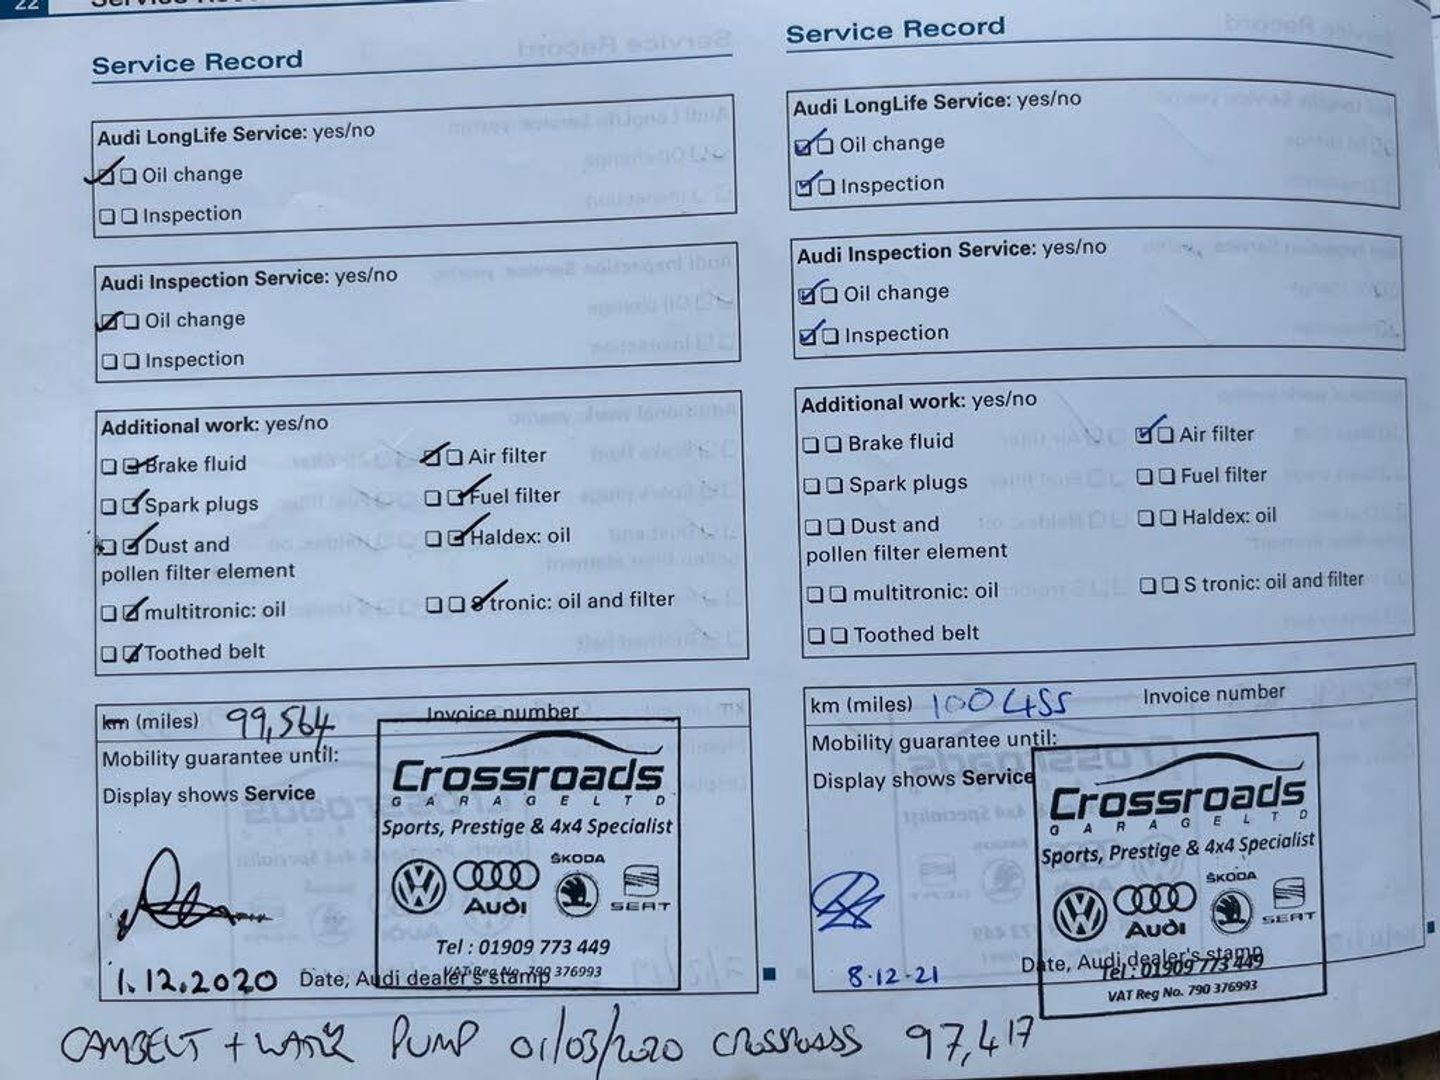 22
Service Record
Audi LongLife Service: yes/no
Oil change
Inspection
Audi Inspection Service: yes/no
Oil change
Inspection
Additional work: yes/no
Brake fluid
Air filter
Spark plugs
Fuel filter
Dust and
Haldex: oil
pollen filter element
multitronic: oil
S tronic: oil and filter
Toothed belt
km (miles) 99,564 Invoice number
Mobility guarantee until:
Display shows Service
Crossroads
GARAGE LTD
Sports, Prestige & 4x4 Specialist
ŠKODA
Audi
SEAT
Tel : 01909 773 449
VAT Reg No. 790 376993
1.12.2020 Date, Audi dealer's stamp
Service Record
Audi LongLife Service: yes/no
Oil change
Inspection
Audi Inspection Service: yes/no
Oil change
Inspection
Additional work: yes/no
Brake fluid
Air filter
Spark plugs
Fuel filter
Dust and
Haldex: oil
pollen filter element
multitronic: oil
S tronic: oil and filter
Toothed belt
km (miles) 100455 Invoice number
Mobility guarantee until:
Display shows Service
Crossroads
GARAGE LTD
Sports, Prestige & 4x4 Specialist
ŠKODA
Audi
SEAT
8.12.21 Date, Audi dealer's stamp
Tel : 01909 773 449
VAT Reg No. 790 376993
CAMBELT + WATER PUMP 01/03/2020 CROSSROADS 97,417